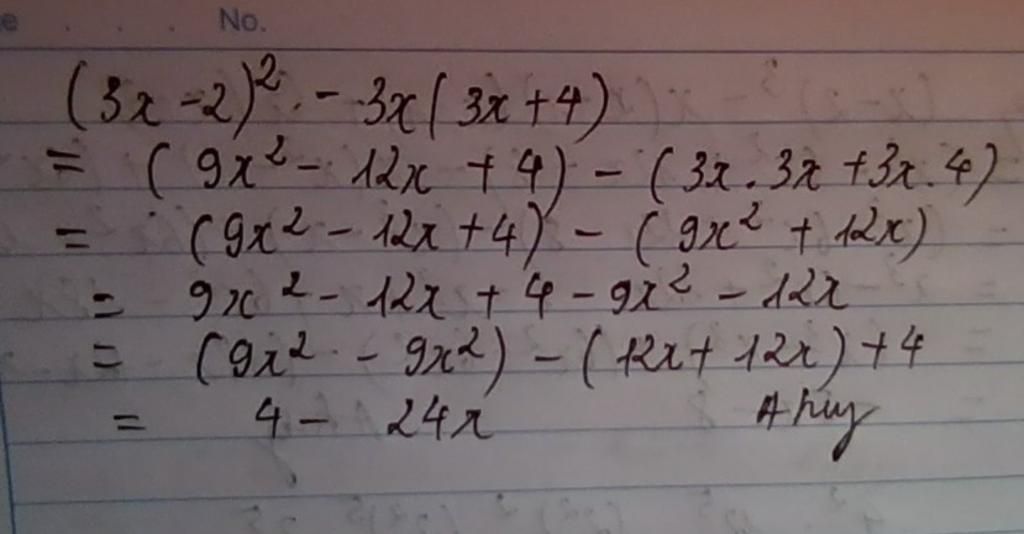 No.
(3x - 2)² - 3x(3x + 4)
= (9x² - 12x + 4) - (3x . 3x + 3x . 4)
= (9x² - 12x + 4) - (9x² + 12x)
= 9x² - 12x + 4 - 9x² - 12x
= (9x² - 9x²) - (12x + 12x) + 4
= 4 - 24x